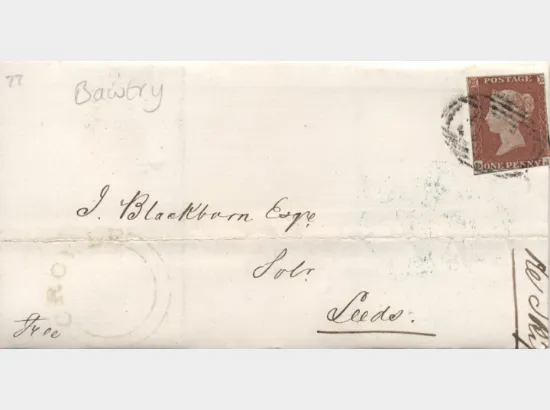 77
Bawtry
POSTAGE
ONE PENNY
J. Blackburn Esqr.
Solr.
Leeds.
Free
CRO